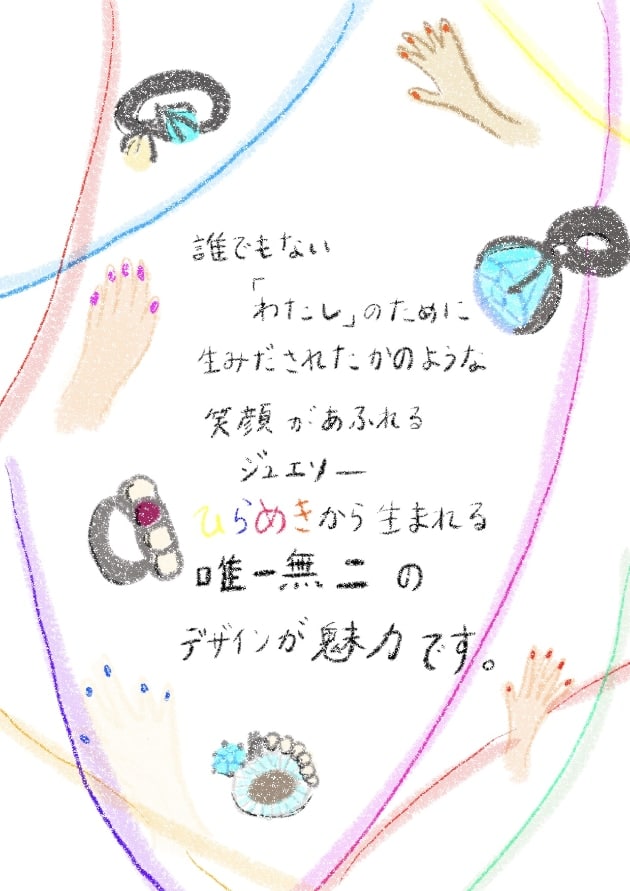 誰でもない
「わたし」のために
生みだされたかのような
笑顔があふれる
ジュエリー
ひらめきから生まれる
唯一無二の
デザインが魅力です。